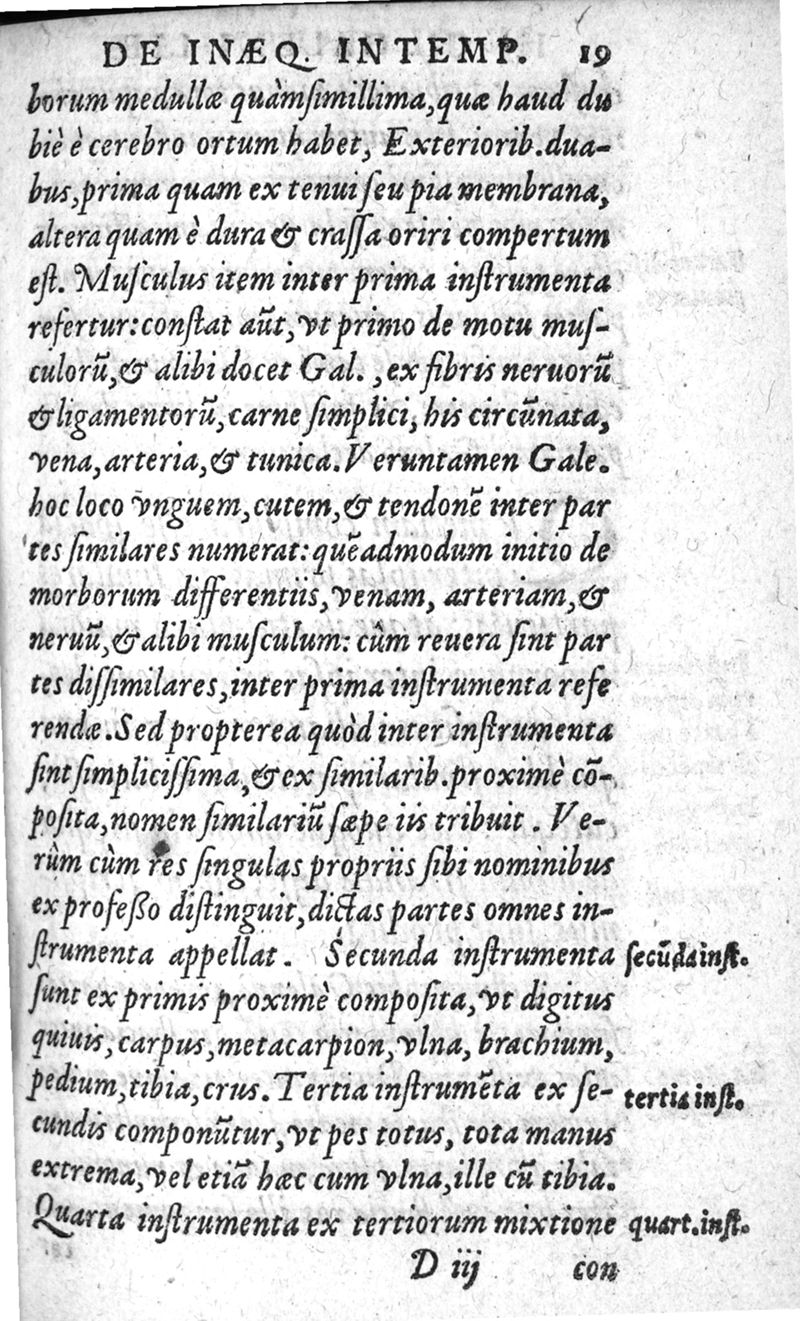 DE INÆQ. INTEMP. 19
borum medullæ quàmsimillima, quæ haud du
biè è cerebro ortum habet, Exteriorib. dua-
bus, prima quam ex tenui seu pia membrana,
altera quam è dura & crassa oriri compertum
est. Musculus item inter prima instrumenta
refertur: constat aũt, vt primo de motu mus-
culorũ, & alibi docet Gal. , ex fibris neruorũ
& ligamentorũ, carne simplici, his circũnata,
vena, arteria, & tunica. Veruntamen Gale.
hoc loco vnguem, cutem, & tendonẽ inter par
tes similares numerat: quẽadmodum initio de
morborum differentiis, venam, arteriam, &
neruũ, & alibi musculum: cùm reuera sint par
tes dissimilares, inter prima instrumenta refe
rendæ. Sed propterea quòd inter instrumenta
sint simplicissima, & ex similarib. proximè cõ-
posita, nomen similariũ sæpe iis tribuit . Ve-
rùm cùm res singulas propriis sibi nominibus
ex professo distinguit, dictas partes omnes in-
strumenta appellat. Secunda instrumenta secũda inst.
sunt ex primis proximè composita, vt digitus
quiuis, carpus, metacarpion, vlna, brachium,
pedium, tibia, crus. Tertia instrumẽta ex se- tertia inst.
cundis componũtur, vt pes totus, tota manus
extrema, vel etiã hæc cum vlna, ille cũ tibia.
Quarta instrumenta ex tertiorum mixtione quart. inst.
D iij con